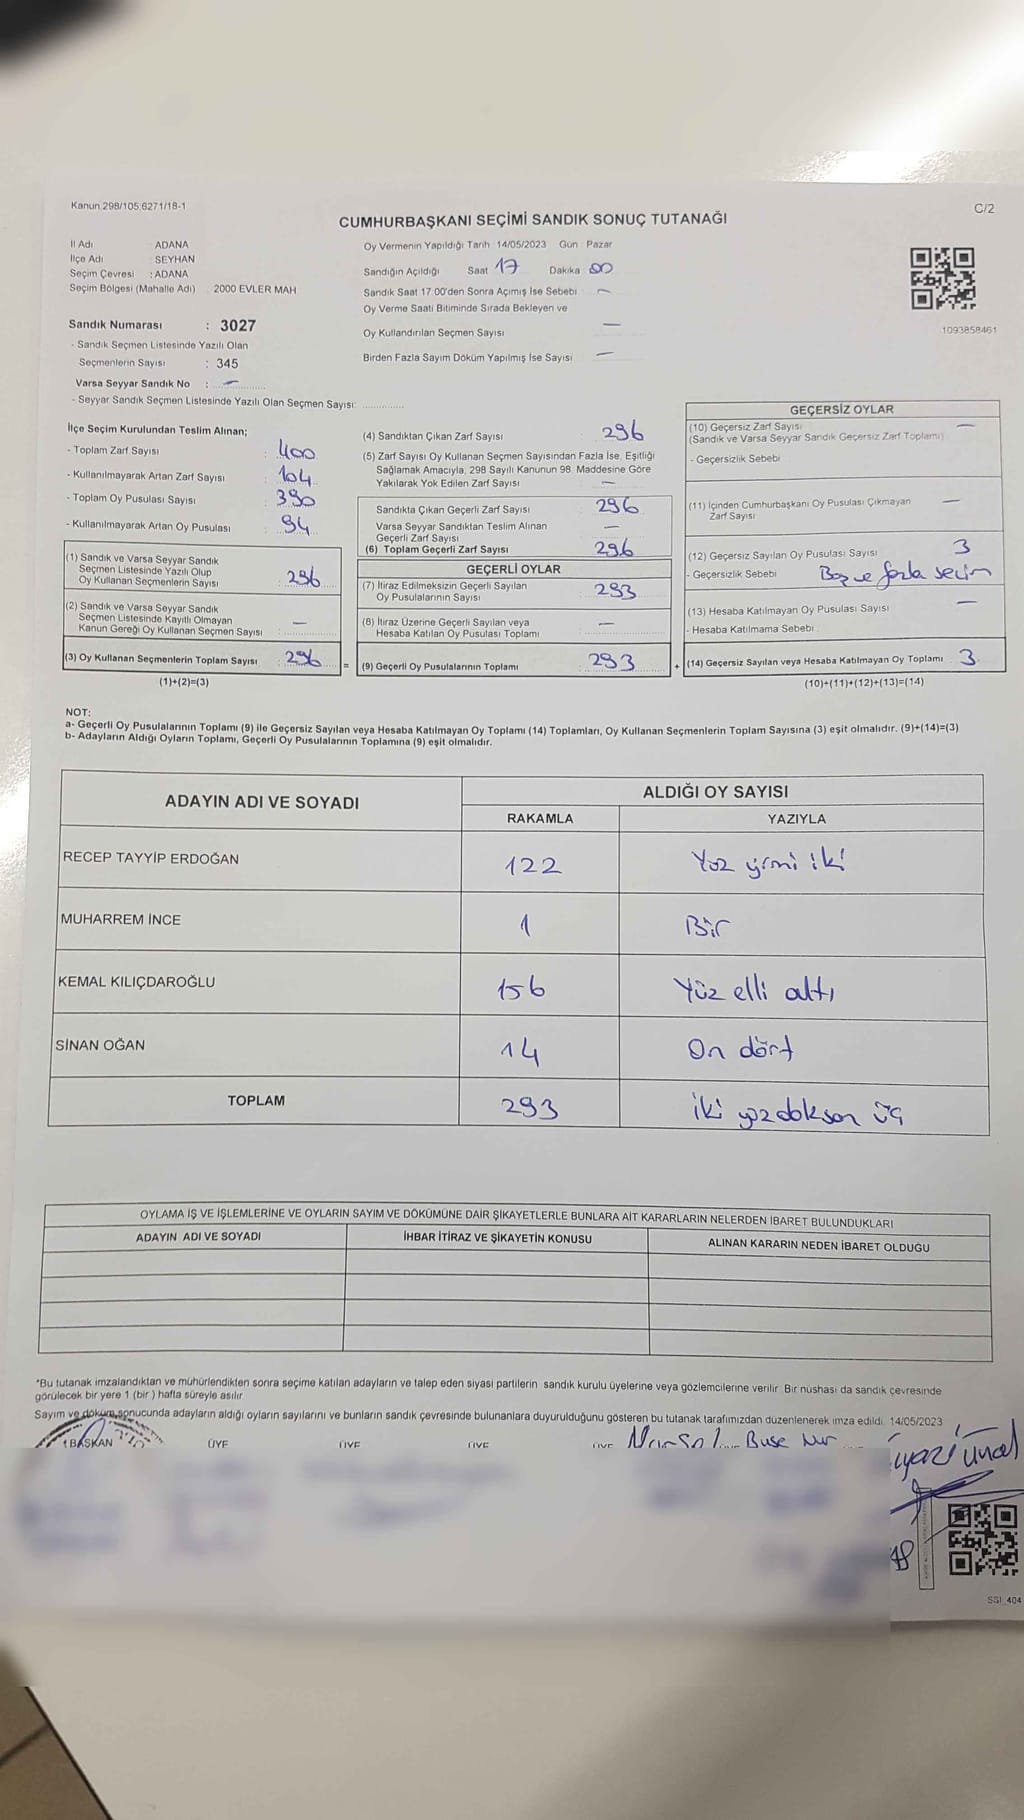 Kanun 298/105;6271/18-1
C/2
CUMHURBAŞKANI SEÇİMİ SANDIK SONUÇ TUTANAĞI
İl Adı ADANA
İlçe Adı SEYHAN
Seçim Çevresi : ADANA
Seçim Bölgesi (Mahalle Adı) 2000 EVLER MAH
Oy Vermenin Yapıldığı Tarih 14/05/2023 Gün Pazar
Sandığın Açıldığı Saat 17 Dakika 00
Sandık Saat 17:00'den Sonra Açımış İse Sebebi –
Oy Verme Saati Bitiminde Sırada Bekleyen ve
Oy Kullandırılan Seçmen Sayısı —
Birden Fazla Sayım Döküm Yapılmış İse Sayısı —
1093858461
Sandık Numarası : 3027
- Sandık Seçmen Listesinde Yazılı Olan
Seçmenlerin Sayısı : 345
Varsa Seyyar Sandık No : —
- Seyyar Sandık Seçmen Listesinde Yazılı Olan Seçmen Sayısı:
İlçe Seçim Kurulundan Teslim Alınan;
- Toplam Zarf Sayısı : 400
- Kullanılmayarak Artan Zarf Sayısı : 104
- Toplam Oy Pusulası Sayısı : 390
- Kullanılmayarak Artan Oy Pusulası : 94
(1) Sandık ve Varsa Seyyar Sandık
Seçmen Listesinde Yazılı Olup
Oy Kullanan Seçmenlerin Sayısı : 296
(2) Sandık ve Varsa Seyyar Sandık
Seçmen Listesinde Kayıtlı Olmayan
Kanun Gereği Oy Kullanan Seçmen Sayısı : —
(3) Oy Kullanan Seçmenlerin Toplam Sayısı : 296
(1)+(2)=(3)
=
(4) Sandıktan Çıkan Zarf Sayısı : 296
(5) Zarf Sayısı Oy Kullanan Seçmen Sayısından Fazla İse, Eşitliği
Sağlamak Amacıyla, 298 Sayılı Kanunun 98. Maddesine Göre
Yakılarak Yok Edilen Zarf Sayısı —
Sandıkta Çıkan Geçerli Zarf Sayısı 296
Varsa Seyyar Sandıktan Teslim Alınan
Geçerli Zarf Sayısı —
(6) Toplam Geçerli Zarf Sayısı 296
GEÇERLİ OYLAR
(7) İtiraz Edilmeksizin Geçerli Sayılan
Oy Pusulalarının Sayısı : 293
(8) İtiraz Üzerine Geçerli Sayılan veya
Hesaba Katılan Oy Pusulası Toplamı : —
(9) Geçerli Oy Pusulalarının Toplamı : 293
+
GEÇERSİZ OYLAR
(10) Geçersiz Zarf Sayısı —
(Sandık ve Varsa Seyyar Sandık Geçersiz Zarf Toplamı)
- Geçersizlik Sebebi
(11) İçinden Cumhurbaşkanı Oy Pusulası Çıkmayan
Zarf Sayısı —
(12) Geçersiz Sayılan Oy Pusulası Sayısı 3
- Geçersizlik Sebebi Boş ve fazla seçim
(13) Hesaba Katılmayan Oy Pusulası Sayısı —
- Hesaba Katılmama Sebebi
(14) Geçersiz Sayılan veya Hesaba Katılmayan Oy Toplamı 3
(10)+(11)+(12)+(13)=(14)
NOT:
a- Geçerli Oy Pusulalarının Toplamı (9) ile Geçersiz Sayılan veya Hesaba Katılmayan Oy Toplamı (14) Toplamları, Oy Kullanan Seçmenlerin Toplam Sayısına (3) eşit olmalıdır. (9)+(14)=(3)
b- Adayların Aldığı Oyların Toplamı, Geçerli Oy Pusulalarının Toplamına (9) eşit olmalıdır.
ADAYIN ADI VE SOYADI
ALDIĞI OY SAYISI
RAKAMLA YAZIYLA
RECEP TAYYİP ERDOĞAN 122 Yüz yirmi iki
MUHARREM İNCE 1 Bir
KEMAL KILIÇDAROĞLU 156 Yüz elli altı
SİNAN OĞAN 14 On dört
TOPLAM 293 iki yüz doksan üç
OYLAMA İŞ VE İŞLEMLERİNE VE OYLARIN SAYIM VE DÖKÜMÜNE DAİR ŞİKAYETLERLE BUNLARA AİT KARARLARIN NELERDEN İBARET BULUNDUKLARI
ADAYIN ADI VE SOYADI İHBAR İTİRAZ VE ŞİKAYETİN KONUSU ALINAN KARARIN NEDEN İBARET OLDUĞU
*Bu tutanak imzalandıktan ve mühürlendikten sonra seçime katılan adayların ve talep eden siyasi partilerin sandık kurulu üyelerine veya gözlemcilerine verilir. Bir nüshası da sandık çevresinde
görülecek bir yere 1 (bir ) hafta süreyle asılır
Sayım ve döküm sonucunda adayların aldığı oyların sayılarını ve bunların sandık çevresinde bulunanlara duyurulduğunu gösteren bu tutanak tarafımızdan düzenlenerek imza edildi. 14/05/2023
BAŞKAN ÜYE ÜYE ÜYE ÜYE Buse Nur
ünal
SSI_404